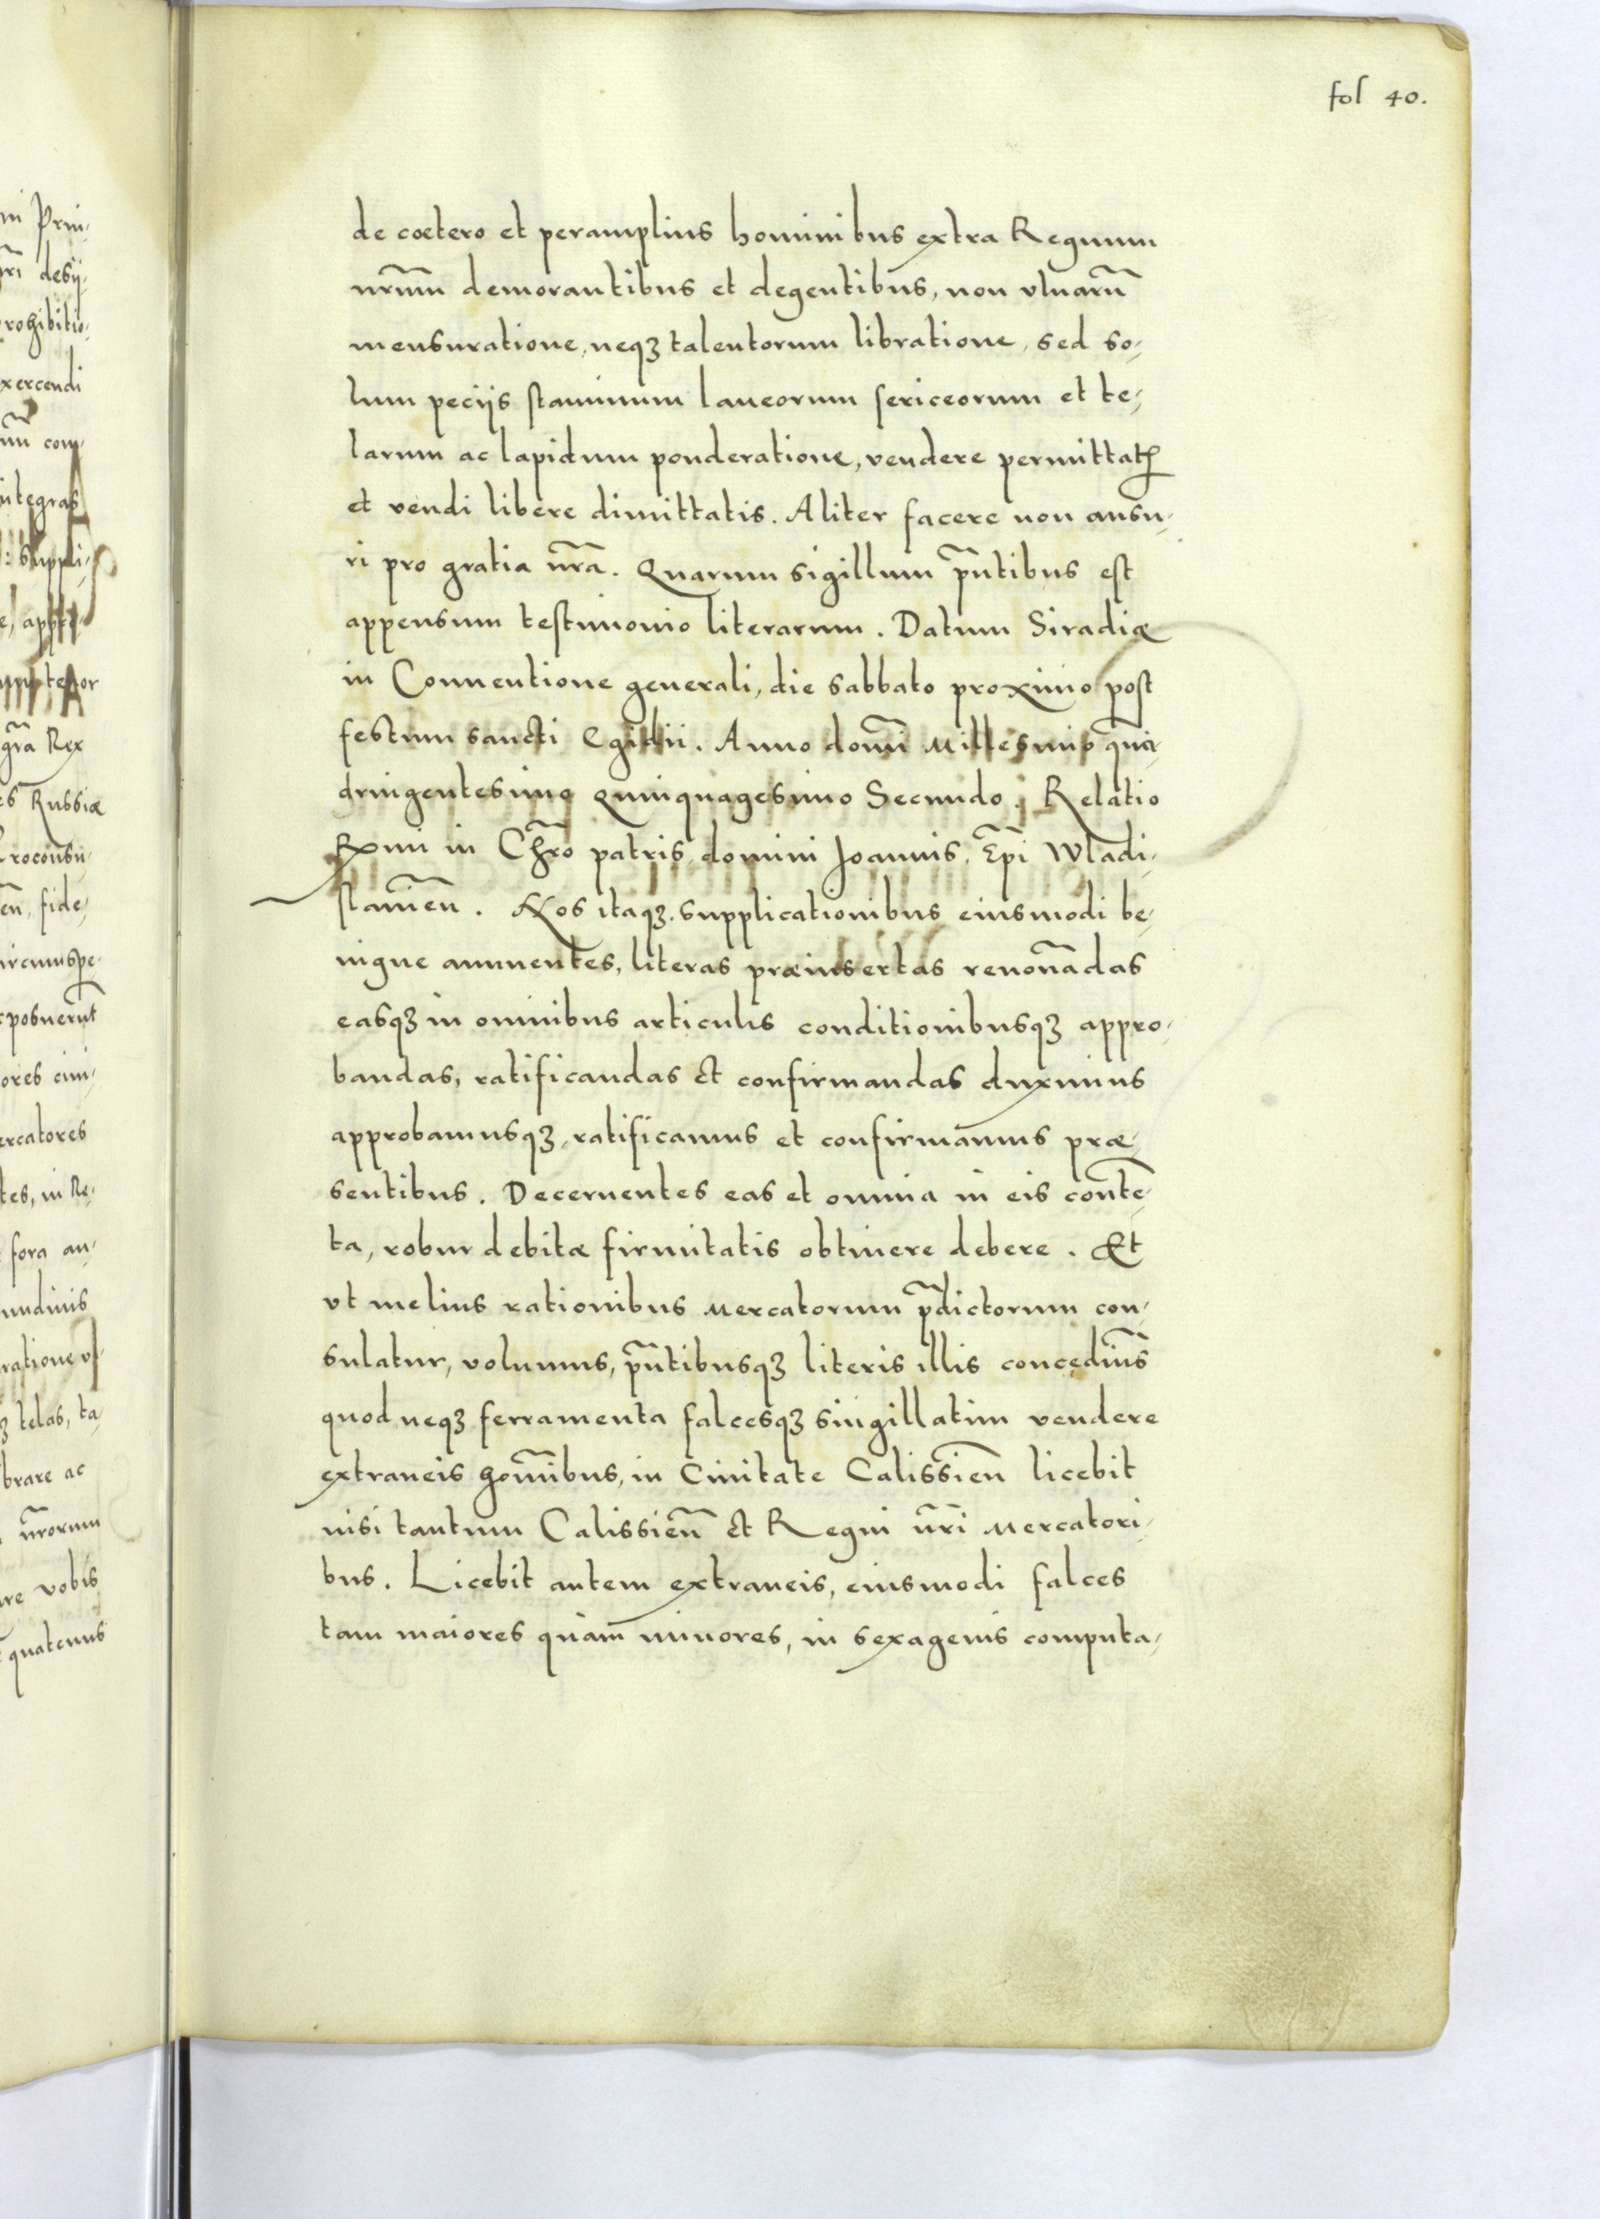 fol 40.
de cœtero et peramplius hominibus extra Regnum
nr̃um demorantibus et degentibus, non vlnarũ
mensuratione, neqꝫ talentorum libratione, sed so-
lum peciis staminum laneorum sericeorum et te-
larum ac lapidum ponderatione, vendere permittatis
et vendi libere dimittatis. Aliter facere non ausu-
ri pro gratia nr̃a. Quarum sigillum pñtibus est
appensum testimonio literarum. Datum Siradiæ
in Conuentione generali, die sabbato proximo post
festum sancti Egidii. Anno domĩ Millesimo qua-
dringentesimo Quinquagesimo Secundo. Relatio
Rx̃mi in Chr̃o patris domini Joannis, Ep̃i Wladi-
slauieñ. Nos itaqꝫ supplicationibus eiusmodi be-
nigne annuentes, literas præinsertas renouãdas
easqꝫ in omnibus articulis conditionibusqꝫ appro-
bandas, ratificandas et confirmandas duximus
approbamusqꝫ, ratificamus et confirmamus præ-
sentibus. Decernentes eas et omnia in eis conte-
ta, robur debitæ firmitatis obtinere debere. Et
vt melius rationibus Mercatorum p̃dictorum con-
sulatur, volumus, pñtibusqꝫ literis illis concedim̃s
quod neqꝫ ferramenta falcesqꝫ singillatim vendere
extraneis hom̃ibus, in Ciuitate Calissieñ licebit
nisi tantum Calissieñ et Regni nr̃i Mercatori-
bus. Licebit autem extraneis, eiusmodi falces
tam maiores quam minores, in sexagenis computa-